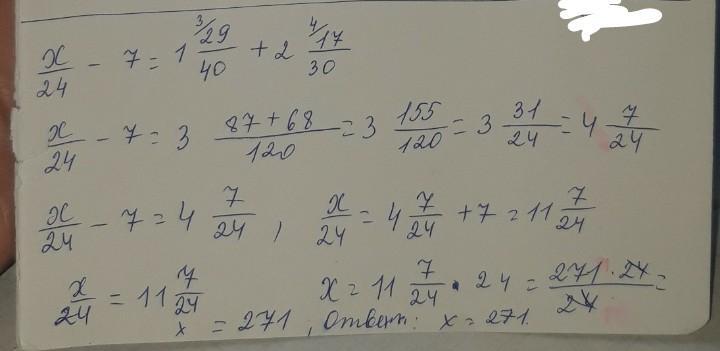 x/24 - 7 = 1 3/29/40 + 2 4/17/30
x/24 - 7 = 3 87+68/120 = 3 155/120 = 3 31/24 = 4 7/24
x/24 - 7 = 4 7/24, x/24 = 4 7/24 + 7 = 11 7/24
x/24 = 11 7/24 x = 11 7/24 · 24 = 271·24/24 =
x = 271, Ответ: x = 271.